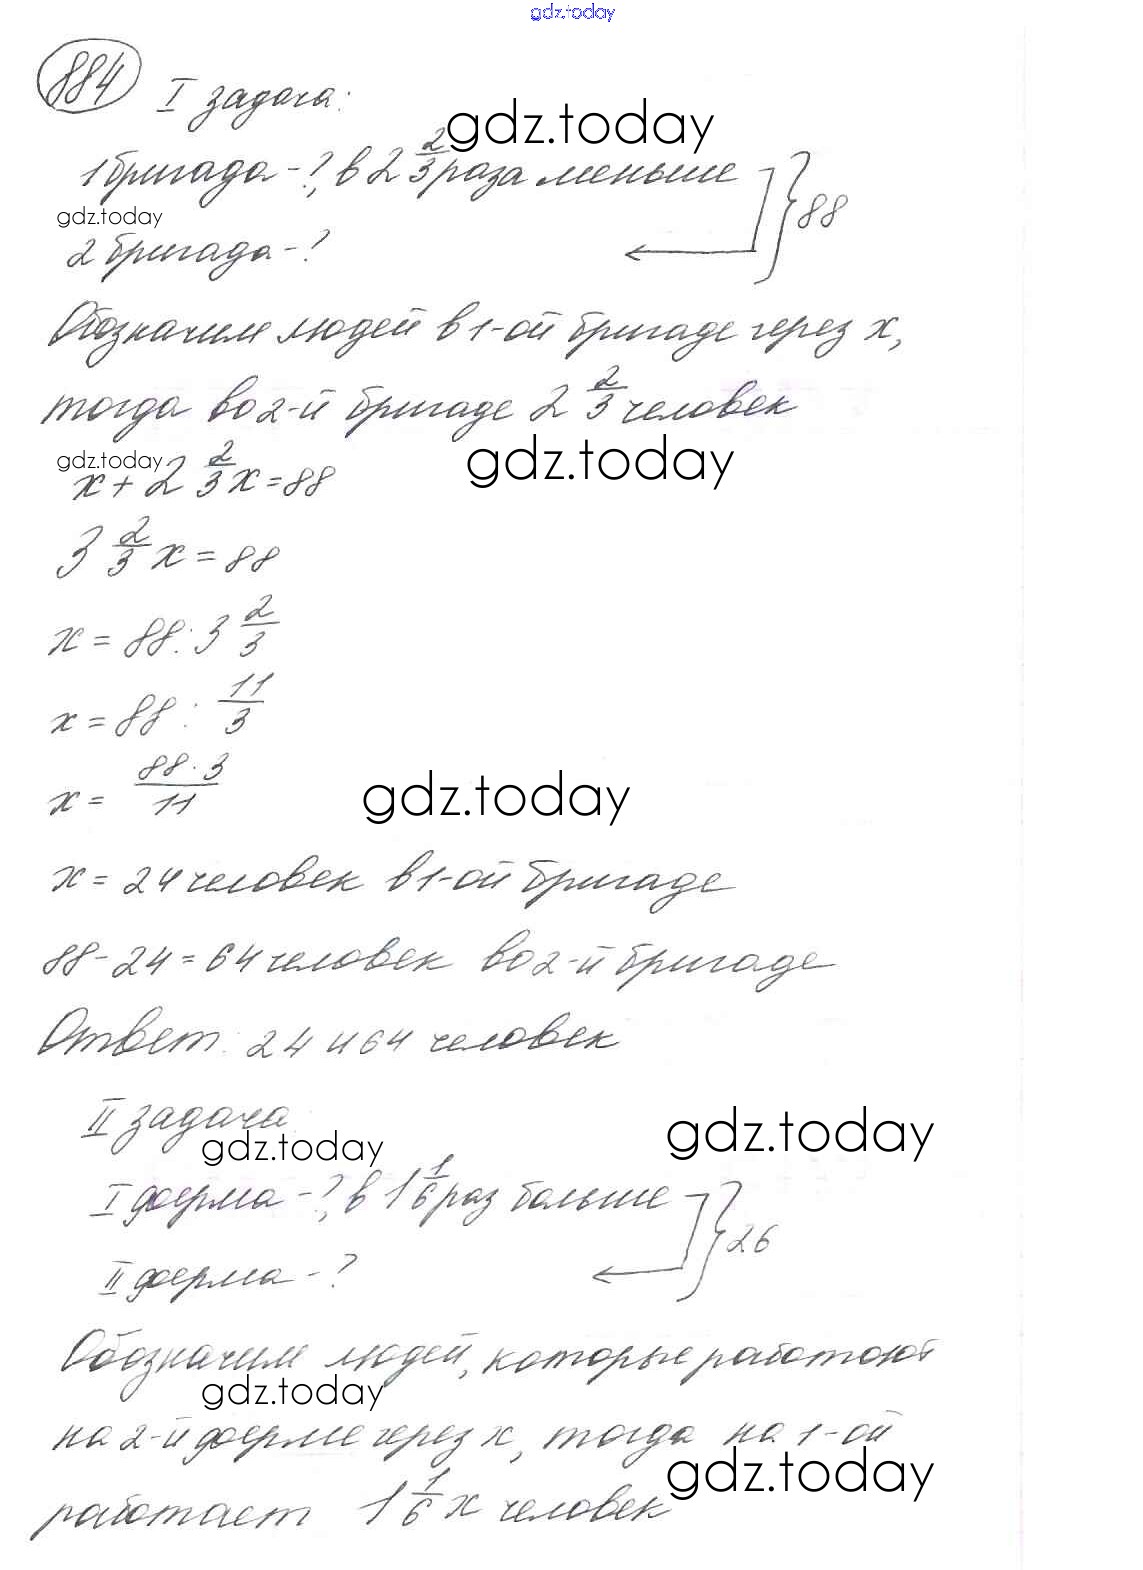 gdz.today
884 I задача:
gdz.today
1 бригада - ?, в 2 2/3 раза меньше
88
gdz.today
2 бригада - ?
Обозначим людей в 1-ой бригаде через x,
тогда во 2-й бригаде 2 2/3 человек
gdz.today
gdz.today
x + 2 2/3 x = 88
3 2/3 x = 88
x = 88 : 3 2/3
x = 88 : 11/3
x = 88 · 3 / 11
gdz.today
x = 24 человек в 1-ой бригаде
88 - 24 = 64 человек во 2-й бригаде
Ответ: 24 и 64 человек
II задача
gdz.today
gdz.today
I ферма - ?, в 1 1/6 раз больше
26
II ферма - ?
Обозначим людей, которые работают
gdz.today
на 2-й ферме через x, тогда на 1-ой
gdz.today
работает 1 1/6 x человек